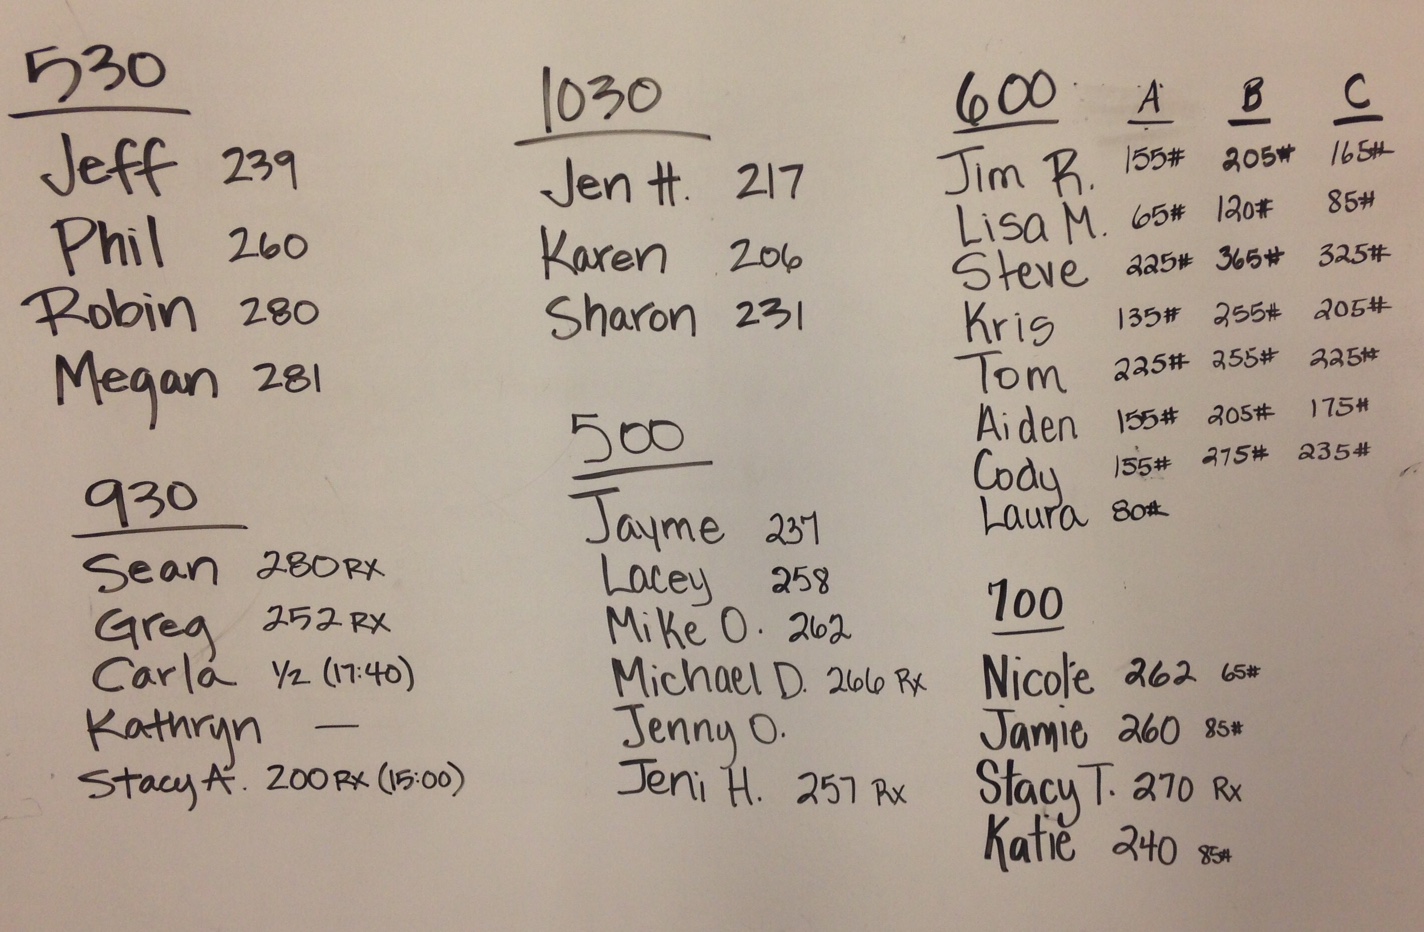 530
Jeff 239
Phil 260
Robin 280
Megan 281
930
Sean 280 RX
Greg 252 RX
Carla 1/2 (17:40)
Kathryn —
Stacy A. 200 RX (15:00)
1030
Jen H. 217
Karen 206
Sharon 231
500
Jayme 237
Lacey 258
Mike O. 262
Michael D. 266 Rx
Jenny O.
Jeni H. 257 Rx
600 A B C
Jim R. 155# 205# 165#
Lisa M. 65# 120# 85#
Steve 225# 365# 325#
Kris 135# 255# 205#
Tom 225# 255# 225#
Aiden 155# 205# 175#
Cody 155# 275# 235#
Laura 80#
700
Nicole 262 65#
Jamie 260 85#
Stacy T. 270 Rx
Katie 240 85#